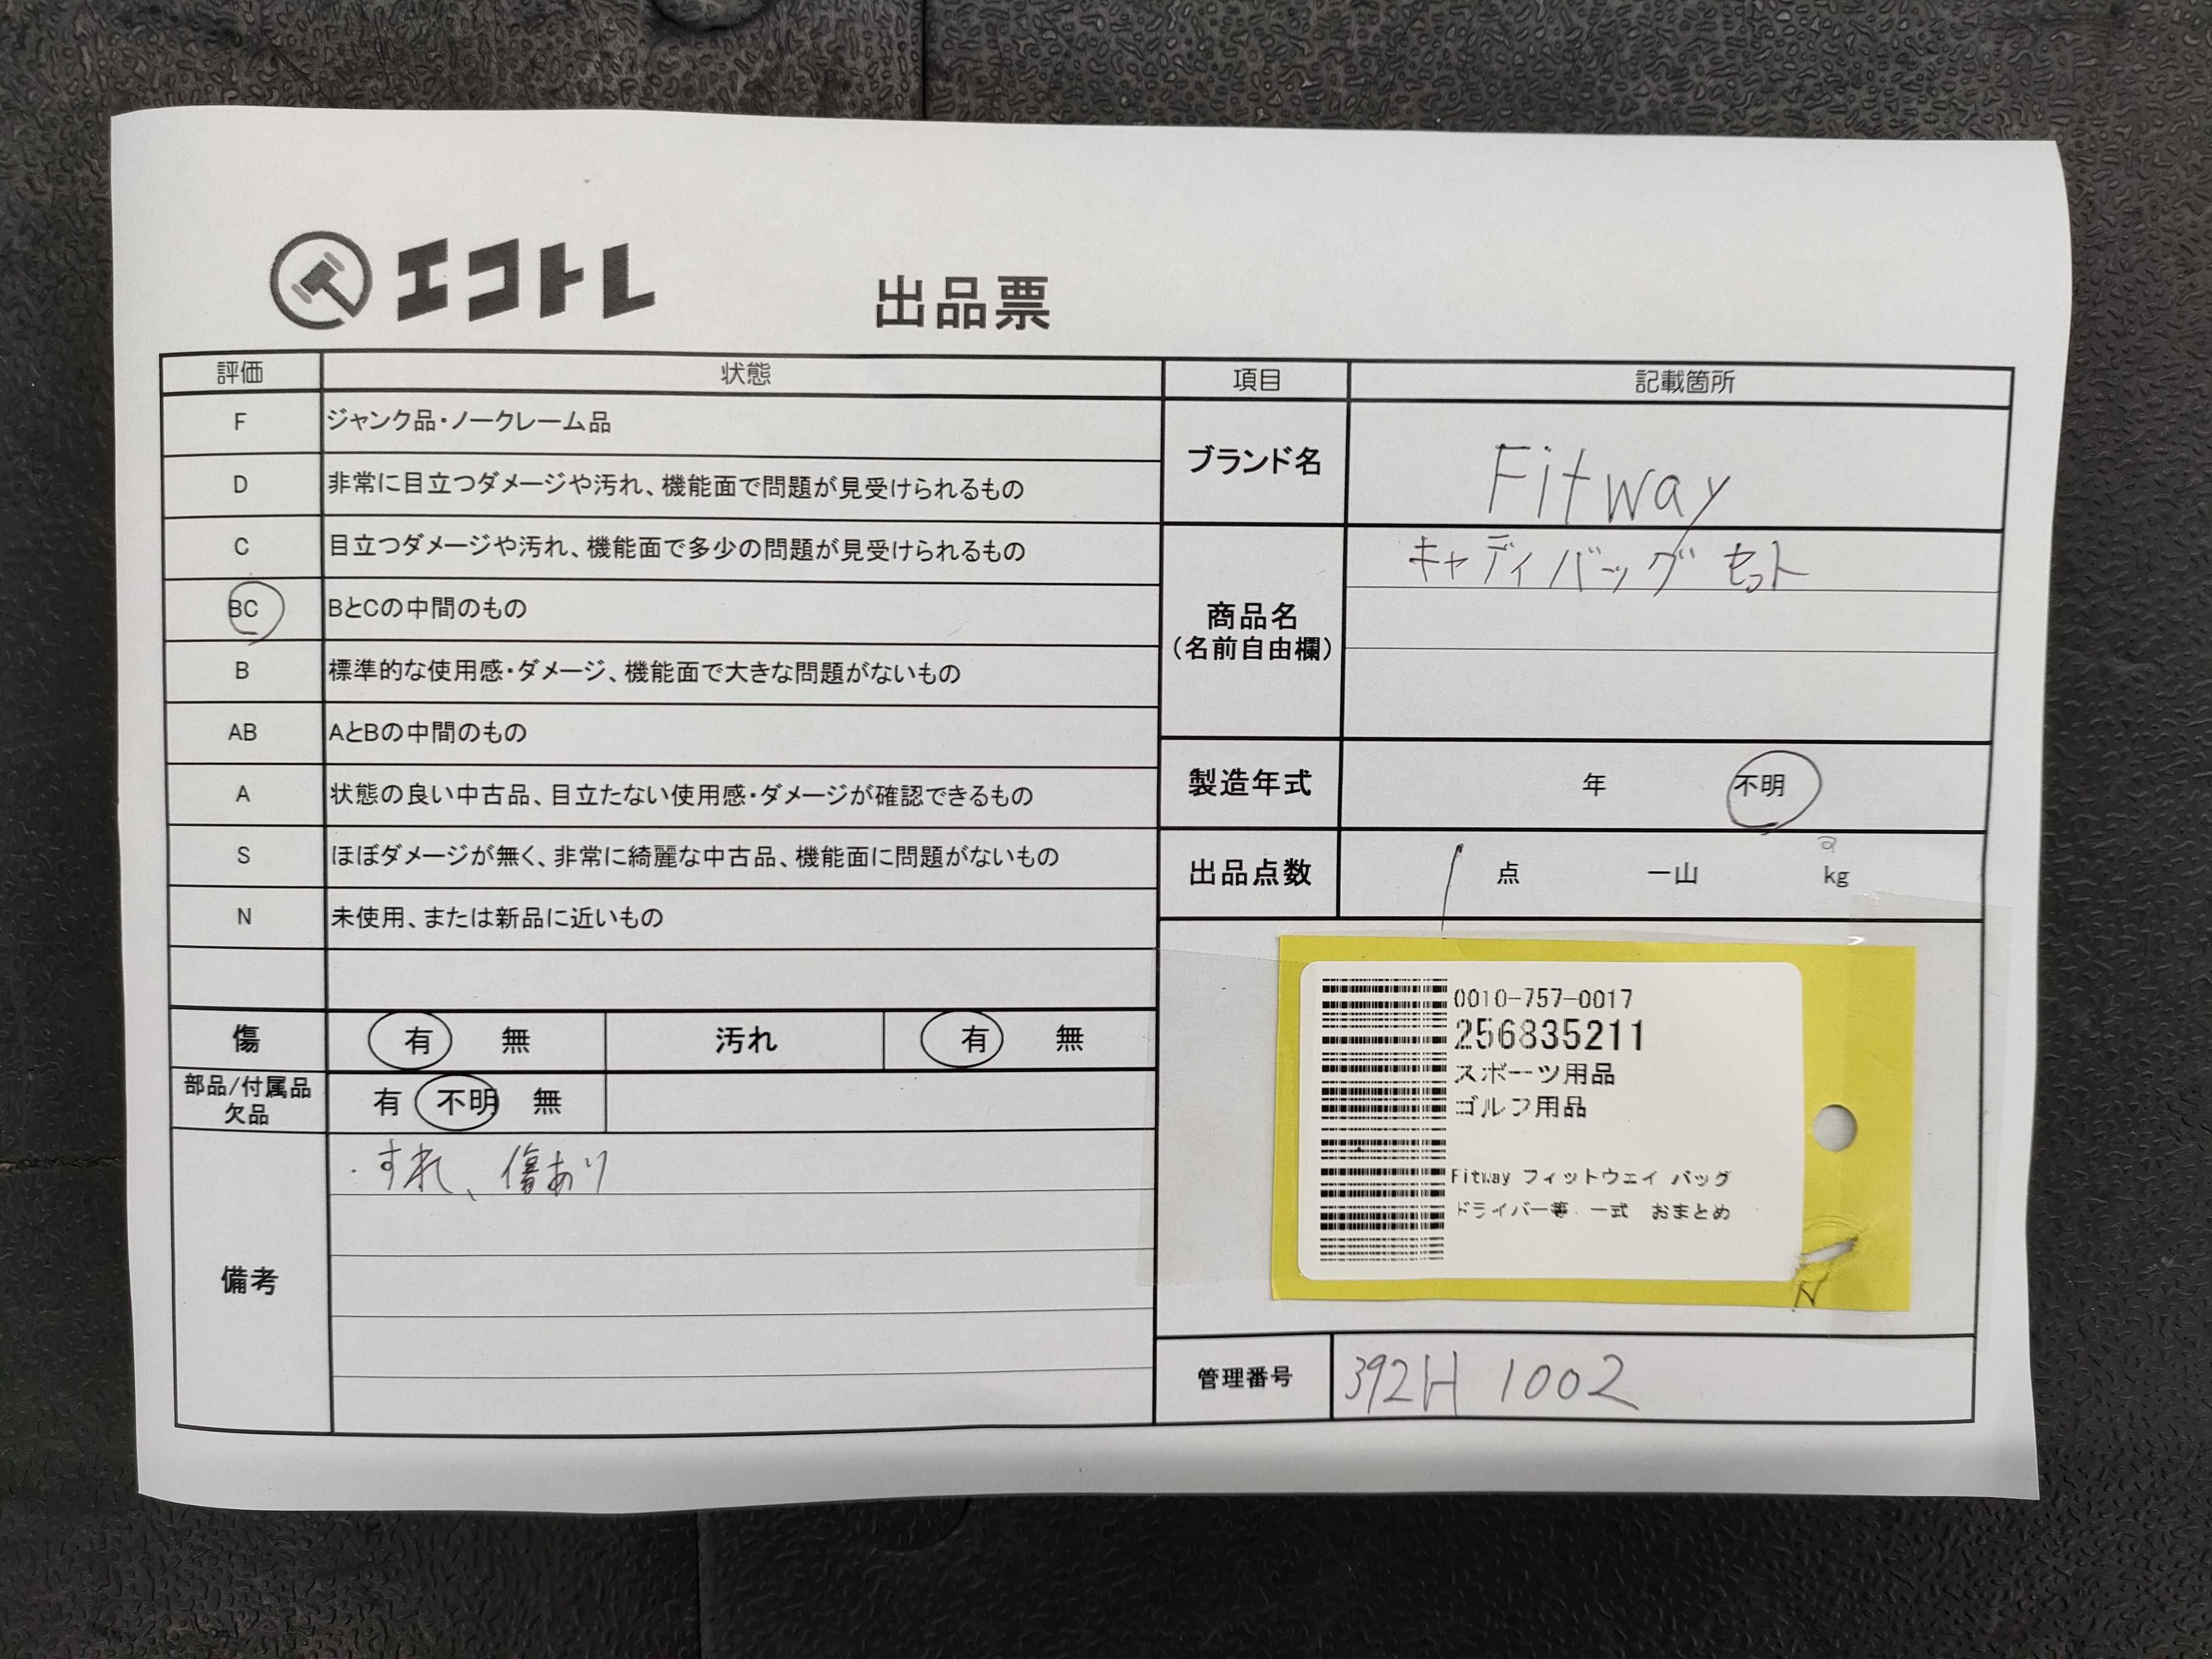 エコトレ
出品票
評価 状態
F ジャンク品・ノークレーム品
D 非常に目立つダメージや汚れ、機能面で問題が見受けられるもの
C 目立つダメージや汚れ、機能面で多少の問題が見受けられるもの
BC BとCの中間のもの
B 標準的な使用感・ダメージ、機能面で大きな問題がないもの
AB AとBの中間のもの
A 状態の良い中古品、目立たない使用感・ダメージが確認できるもの
S ほぼダメージが無く、非常に綺麗な中古品、機能面に問題がないもの
N 未使用、または新品に近いもの
傷 有 無 汚れ 有 無
部品/付属品
欠品
有 不明 無
備考
・すれ、傷あり
項目 記載箇所
ブランド名 Fitway
商品名
(名前自由欄)
キャディバッグセット
製造年式 年 不明
出品点数 1 点 一山 kg
0010-757-0017
256835211
スポーツ用品
ゴルフ用品
Fitway フィットウェイ バッグ
ドライバー等 一式 おまとめ
管理番号 392H 1002